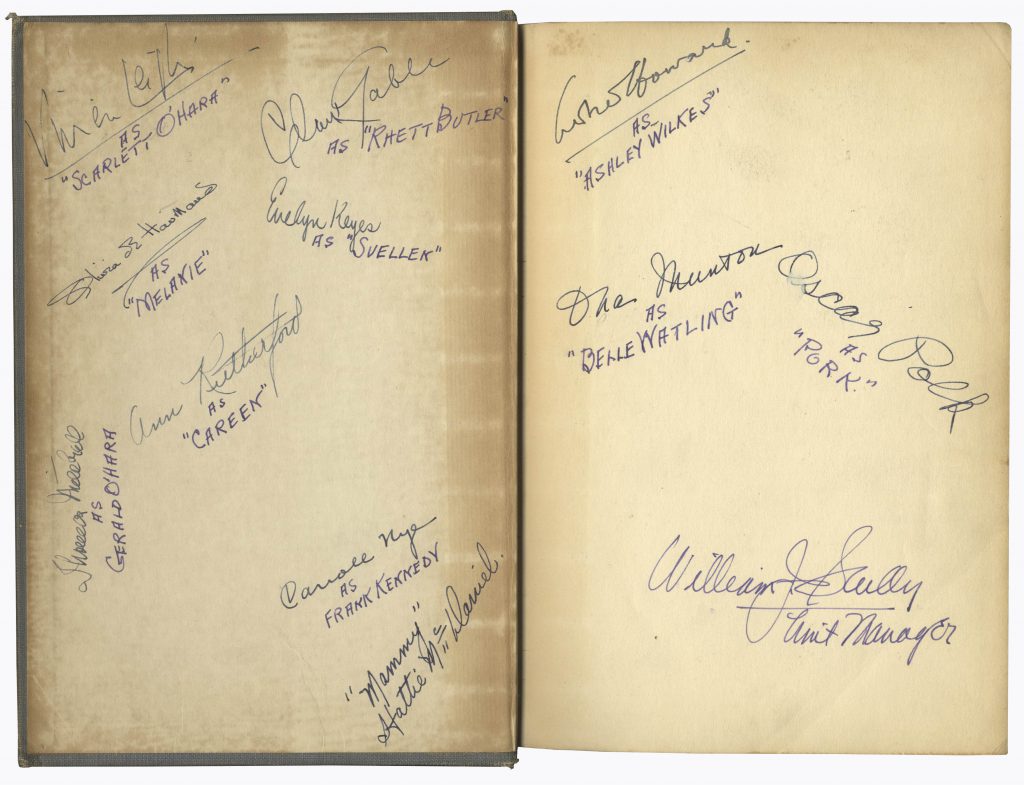 Vivien Leigh
AS
"SCARLETT O'HARA"
Clark Gable
AS "RHETT BUTLER"
Olivia de Havilland
AS
"MELANIE"
Evelyn Keyes
AS "SUELLEN"
Ann Rutherford
AS
"CAREEN"
Thomas Mitchell
AS
GERALD O'HARA
Carroll Nye
AS
FRANK KENNEDY
"Mammy"
Hattie McDaniel.
Leslie Howard.
AS
"ASHLEY WILKES"
Ona Munson
AS
"BELLE WATLING"
Oscar Polk
AS
"PORK."
William J. Scully
Unit Manager